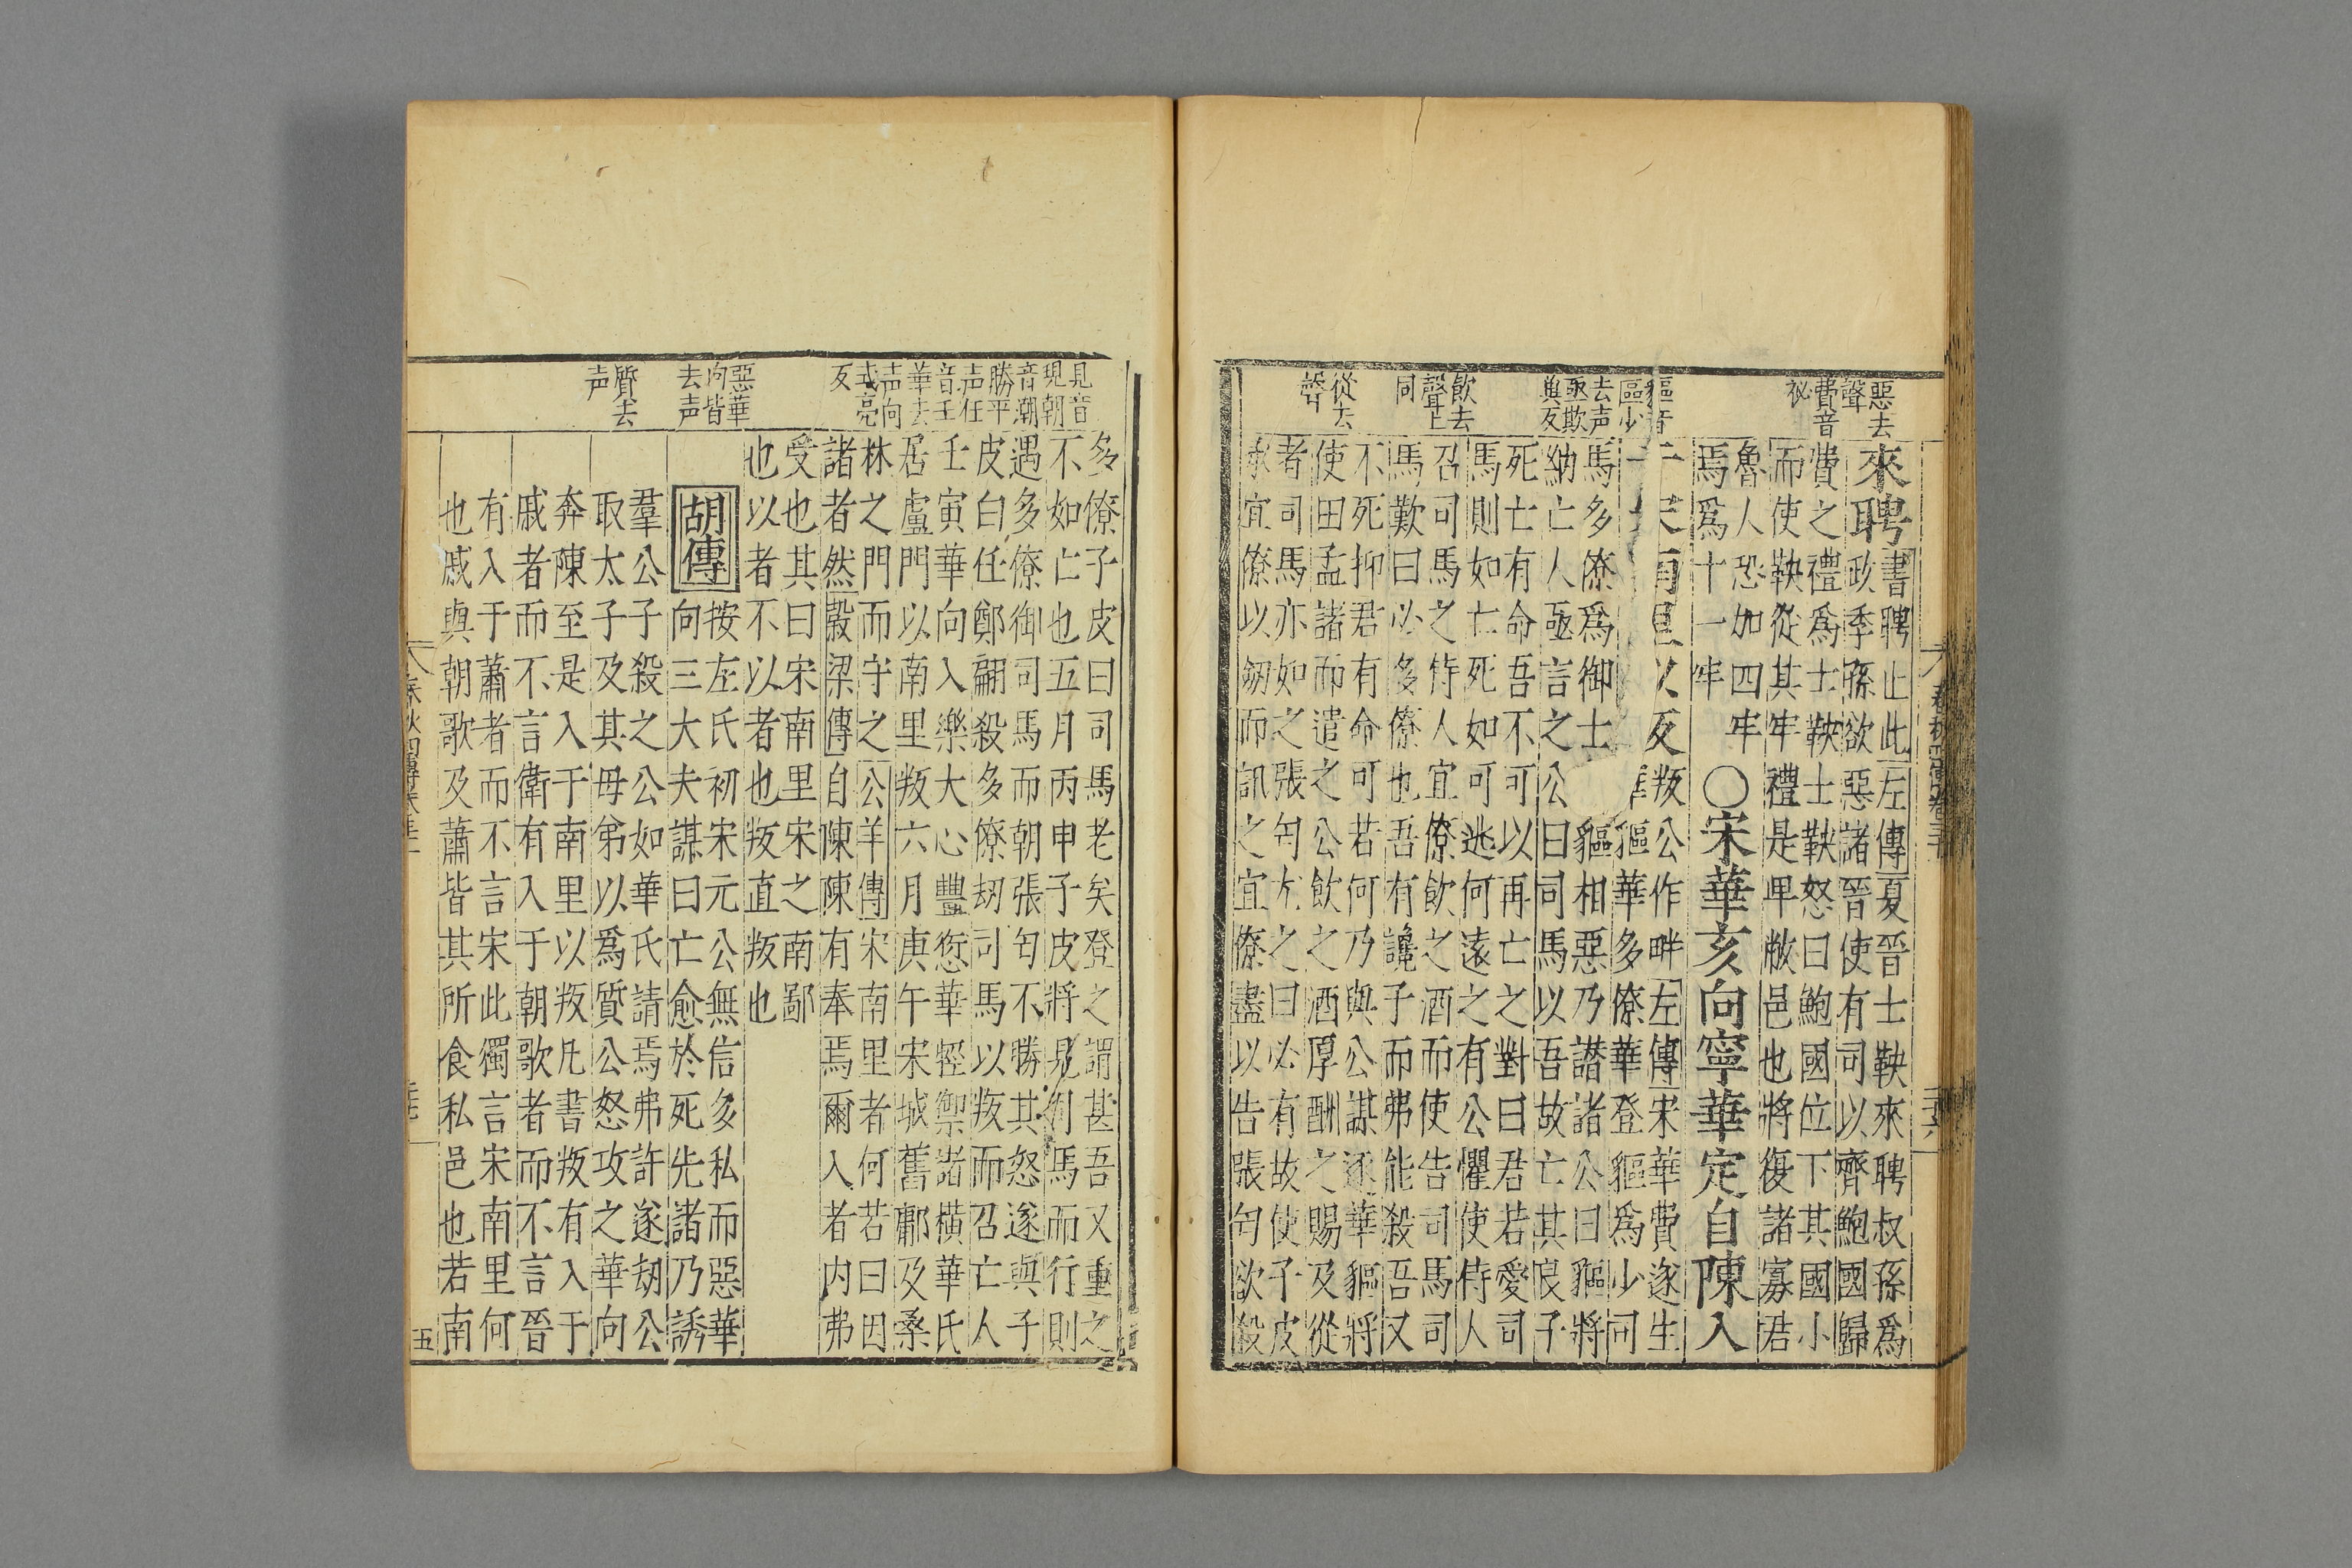 惡去
聲
費音
祕
貙音
區少
去声
亟欺
與反
飲去
聲上
同
從去
聲
來聘
書聘止此左傳夏晉士鞅來聘叔孫爲
政季孫欲惡諸晉使有司以齊鮑國歸
費之禮爲士鞅士鞅怒曰鮑國位下其國小
而使鞅從其牢禮是卑敝邑也將復諸寡君
魯人恐加四牢
焉爲十一牢
○宋華亥向寧華定自陳入
南里以叛
叛公作畔左傳宋華費遂生
華貙華多僚華登貙爲少司
馬多僚爲御士 貙相惡乃譖諸公曰貙將
納亡人亟言之公曰司馬以吾故亡其良子
死亡有命吾不可以再亡之對曰君若愛司
馬則如亡死如可逃何遠之有公懼使侍人
召司馬之侍人宜僚飲之酒而使告司馬司
馬歎曰必多僚也吾有讒子而弗能殺吾又
不死抑君有命可若何乃與公謀逐華貙將
使田孟諸而遣之公飲之酒厚酬之賜及從
者司馬亦如之張匄尤之曰必有故使子皮
承宜僚以劒而訊之宜僚盡以告張匄欲殺
見音
現朝
音潮
勝平
声任
音壬
華去
声向
式亮
反
惡華
向皆
去声
質去
声
多僚子皮曰司馬老矣登之謂甚吾又重之
不如亡也五月丙申子皮將見司馬而行則
遇多僚御司馬而朝張匄不勝其怒遂與子
皮臼任鄭翩殺多僚刧司馬以叛而召亡人
壬寅華向入樂大心豐愆華牼禦諸橫華氏
居盧門以南里叛六月庚午宋城舊鄘及桑
林之門而守之公羊傳宋南里者何若曰因
諸者然穀梁傳自陳陳有奉焉爾入者内弗
受也其曰宋南里宋之南鄙
也以者不以者也叛直叛也
胡傳
按左氏初宋元公無信多私而惡華
向三大夫謀曰亡愈於死先諸乃誘
羣公子殺之公如華氏請焉弗許遂刧公
取太子及其母弟以爲質公怒攻之華向
奔陳至是入于南里以叛凡書叛有入于
戚者而不言衛有入于朝歌者而不言晉
有入于蕭者而不言宋此獨言宋南里何
也戚與朝歌及蕭皆其所食私邑也若南
五